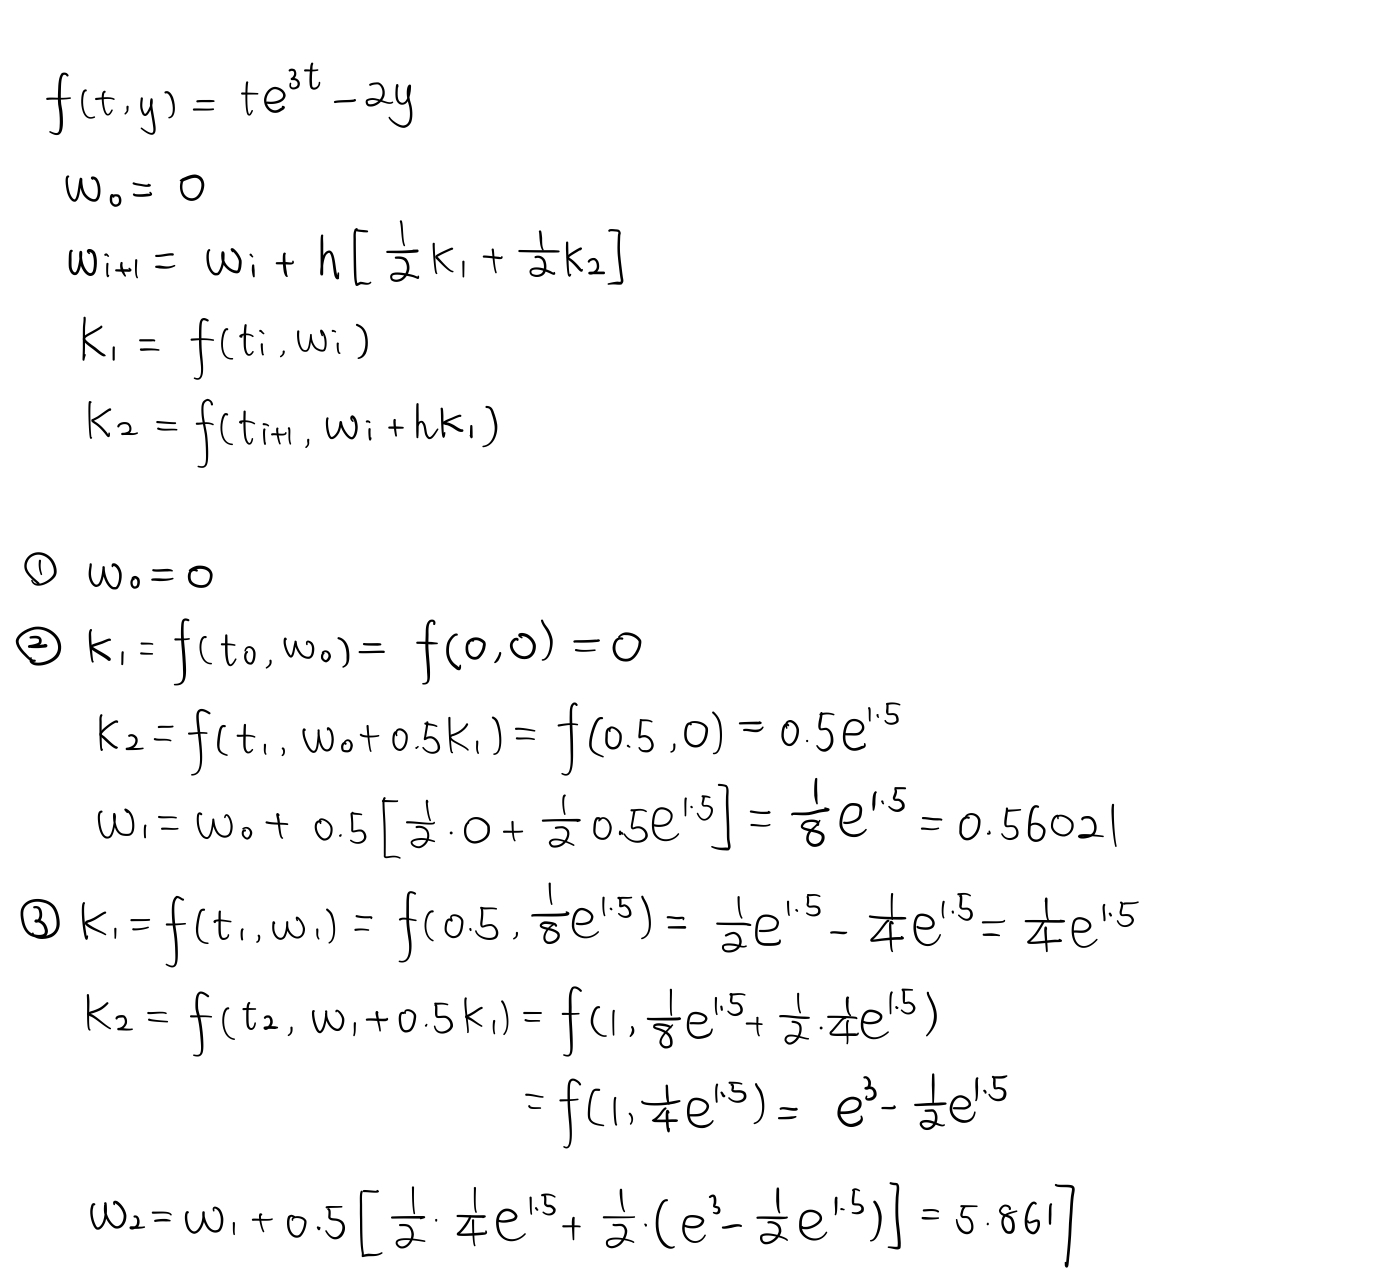 f(t,y) = te^{3t} - 2y
w₀ = 0
w_{i+1} = w_i + h[ \frac{1}{2}k₁ + \frac{1}{2}k₂]
k₁ = f(t_i, w_i)
k₂ = f(t_{i+1}, w_i + hk₁)
① w₀ = 0
② k₁ = f(t₀, w₀) = f(0,0) = 0
k₂ = f(t₁, w₀ + 0.5k₁) = f(0.5, 0) = 0.5e^{1.5}
w₁ = w₀ + 0.5[\frac{1}{2}·0 + \frac{1}{2} 0.5e^{1.5}] = \frac{1}{8}e^{1.5} = 0.56021
③ k₁ = f(t₁, w₁) = f(0.5, \frac{1}{8}e^{1.5}) = \frac{1}{2}e^{1.5} - \frac{1}{4}e^{1.5} = \frac{1}{4}e^{1.5}
k₂ = f(t₂, w₁ + 0.5k₁) = f(1, \frac{1}{8}e^{1.5} + \frac{1}{2}·\frac{1}{4}e^{1.5})
= f(1, \frac{1}{4}e^{1.5}) = e³ - \frac{1}{2}e^{1.5}
w₂ = w₁ + 0.5[\frac{1}{2}·\frac{1}{4}e^{1.5} + \frac{1}{2}·(e³ - \frac{1}{2}e^{1.5})] = 5.8617